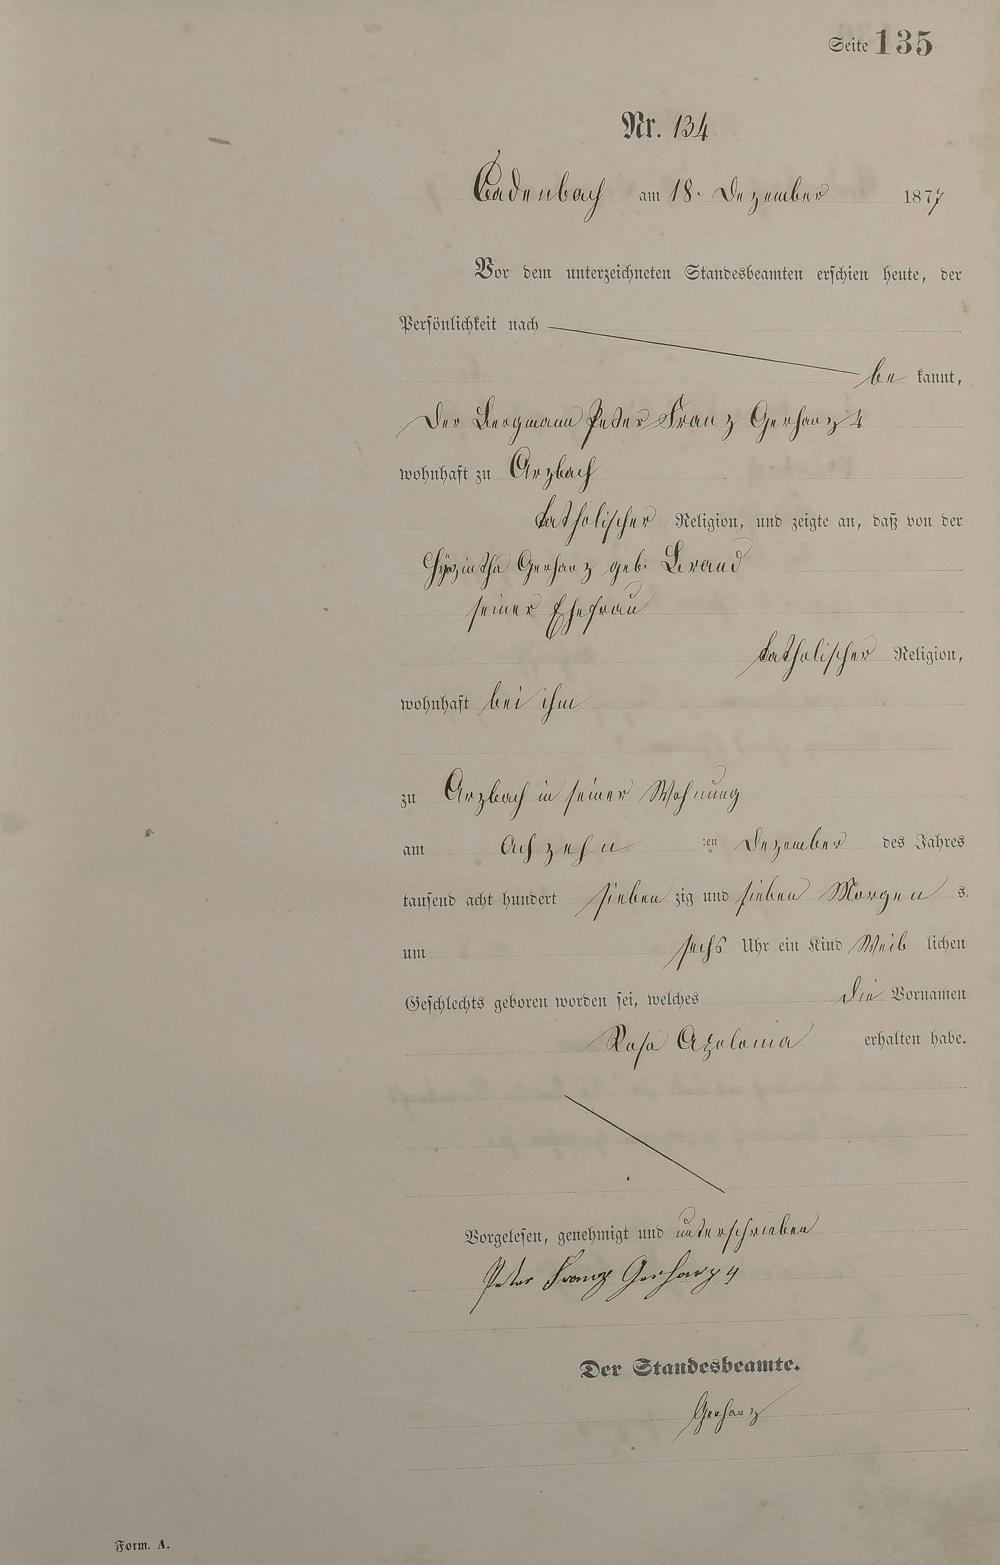 Seite 135
Nr. 134
Cadenbach am 18. Dezember 1877
Vor dem unterzeichneten Standesbeamten erschien heute, der
Persönlichkeit nach
be kannt,
der Bergmann Peter Franz Gerhanz 4
wohnhaft zu Arzbach
katholischer Religion, und zeigte an, daß von der
Hyazintha Gerhanz geb. Brand
seiner Ehefrau
katholischer Religion,
wohnhaft bei ihm
zu Arzbach in seiner Wohnung
am achzehn ten Dezember des Jahres
tausend acht hundert sieben zig und sieben Morgen s.
um sechs Uhr ein Kind Weib lichen
Geschlechts geboren worden sei, welches die Vornamen
Rosa Apolonia erhalten habe.
Vorgelesen, genehmigt und unterschrieben
Peter Franz Gerhanz 4
Der Standesbeamte.
Gerhanz
Form. A.